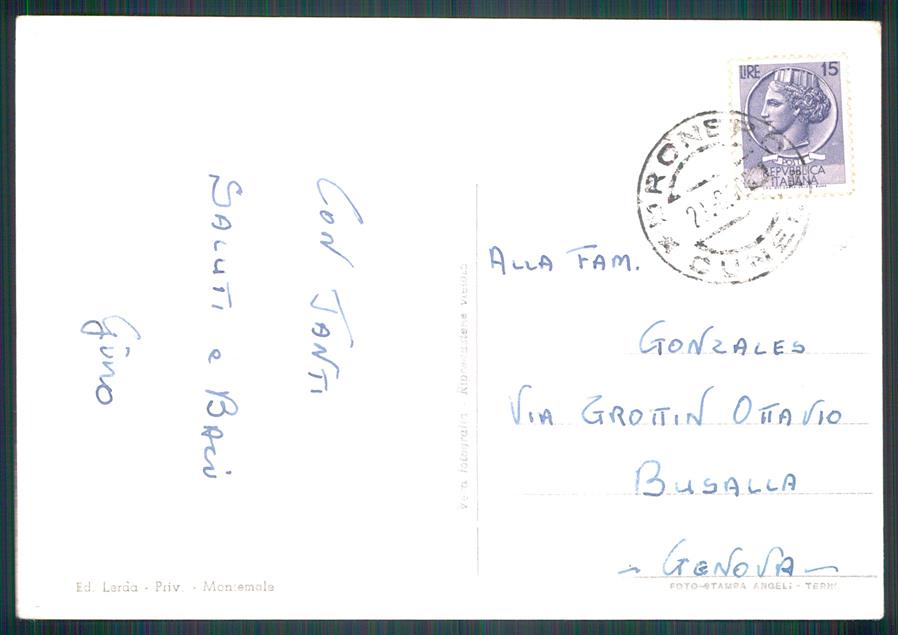 CON TANTI
SALUTI e BACI
Gino
Vera fotografia Riproduzione vietata
Ed. Lerda - Priv. - Montemale
LIRE 15
POSTE
REPVBBLICA
ITALIANA
DRONERO
CUNEO
ALLA FAM.
GONZALES
VIA GROTTIN OTTAVIO
BUSALLA
~ GENOVA ~
FOTO-STAMPA ANGELI - TERNI